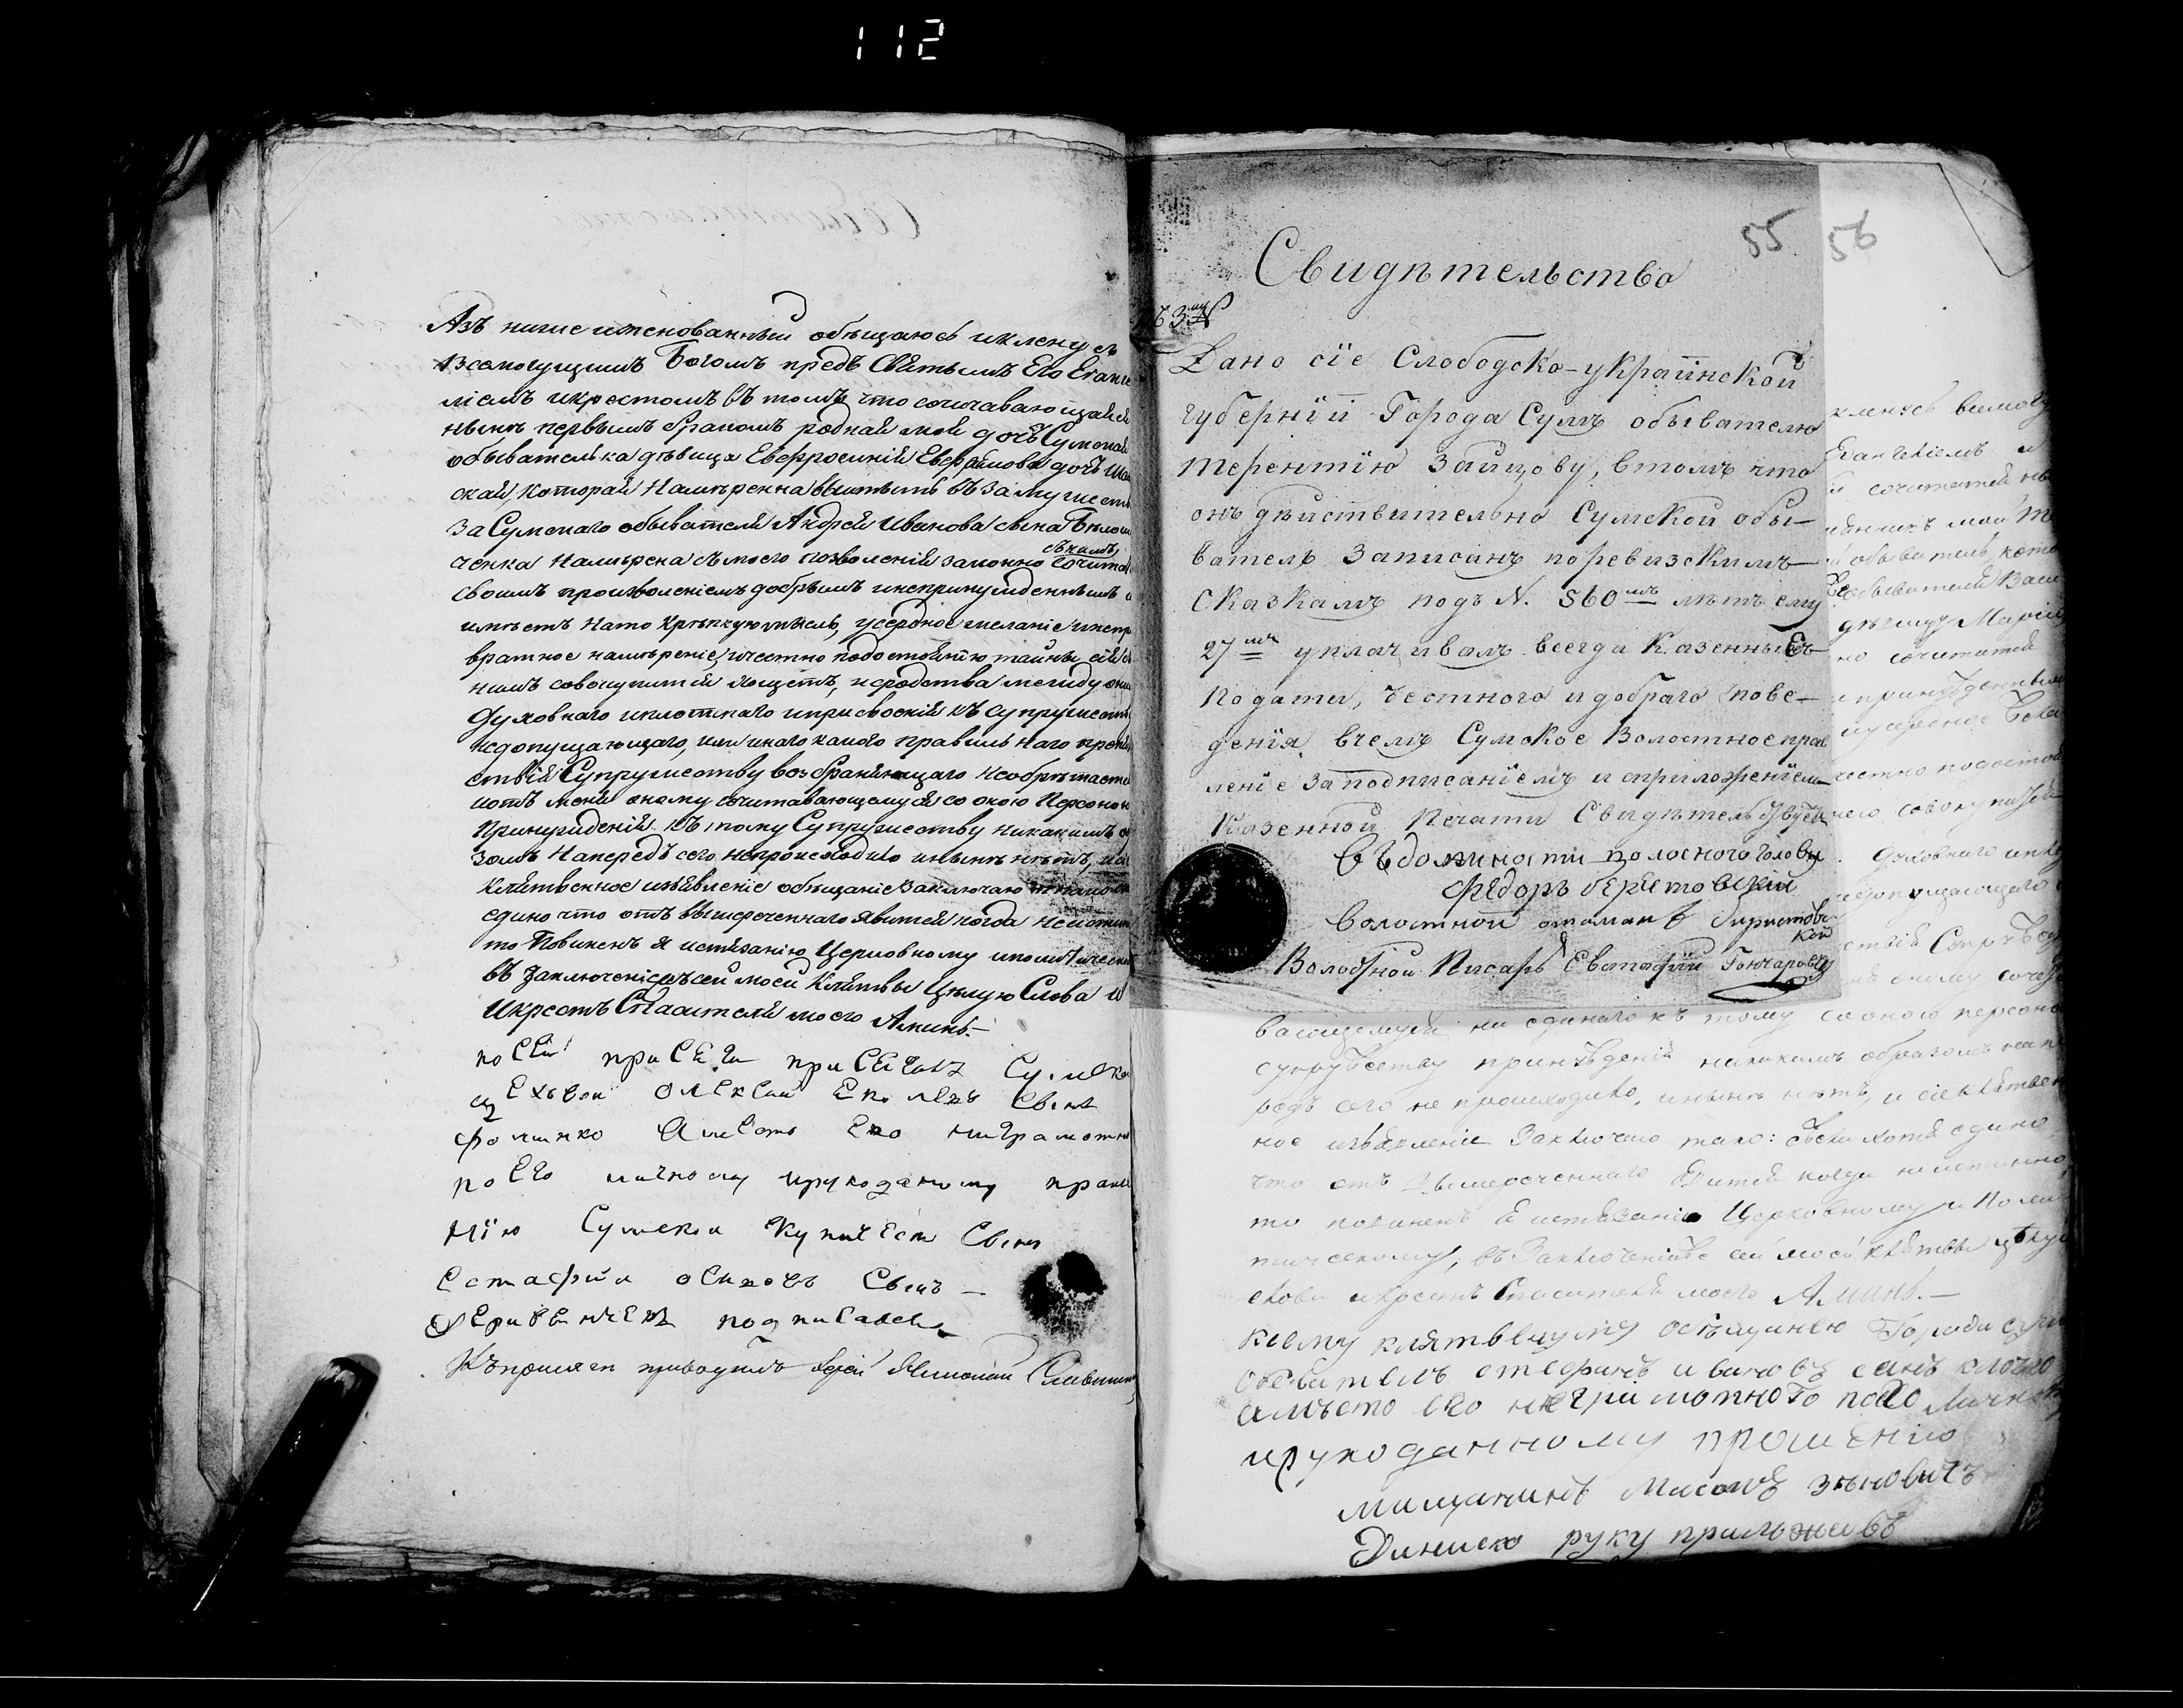 112
Азъ ниже именованный обѣщаюсь и кленусь
Всемогущимъ Богомъ предъ Святымъ Его Еванге
ліемъ и крестомъ въ томъ, что сочичавающаяся
нынѣ первымъ бракомъ родная моя дочь Сумская
обывателька дѣвица Евфросинія дочь
ская, которая намѣренна вытти въ замужеств
за Сумскаго обывателя Андрея Иванова сына
ченка намѣрена съ моего позволенія законно съ нимъ сочитат
своимъ произволеніемъ добрымъ и непринужденнымъ и
имѣетъ на то крѣпкую мысль, усердное желаніе и непр
вратное намѣреніе, и честно по достоянію тайны сія
нимъ совокупится хощетъ, и сродства между они
духовнаго и плотскаго и присвоенія къ супружеств
недопущающаго, или инаго какого правильнаго препя
ствія Супружеству возбраняющаго необрѣтаетс
и отъ меня оному сочитавающемуся со оною персоною
Принужденія къ тому Супружеству никакимъ о
зомъ напередъ сего непроисходило и нынѣ нѣтъ, и с
клятвенное изъявленіе обѣщаніе заключаю тако
едино что отъ вышереченнаго явится когда неистин
то Повиненъ я истязанію Церковному и политическ
въ заключеніе сей моей клятвы цѣлую Слова и
и крестъ Спасителя моего Аминь.—
по сей присяги присягалъ Сумско
цеховой олексей сынъ
фоминко аместо его ниграмотна
по его личному и рукоданому праше
нїю Сумской купичест сынъ
Естафїй осиповъ сынъ —
подписался
Къ присяге приводилъ Іерей
55 56
Свидѣтельство
Дано сїе Слободско-украинской
губернїи Города Сумъ обывателю
терентїю Зайцову, втомъ что
онъ дѣйствительно Сумской обы-
ватель Записанъ поревизскимъ
сказкамъ подъ N. 560мъ лѣтъ ему
27мъ уплачивалъ всегда Казенныя
подати, честного и добраго пове-
денїя, вчемъ Сумское Волостное прав
ленїе Заподписанїемъ и сприложенїем
Казенной Печати Свидѣтельствует
въ должности волосного Головы
Федоръ
Волостной отаманъ
Волосной Писарь Евстафїй Гончаровъ
кленусь всемогу
Евангеліемъ и
сочитатся ны
мой
обыватель, кото
обывателя Васи
дѣвицу Марію
но сочитатся
и принужденным
честно по достоя
него совокупится
духовнаго и пл
недопущающаго
ствія Супружес
оному сочета
вающемуся ни единаго къ тому со оною персоно
супружеству принужденія никакимъ образомъ напе
редъ сего не происходило, и нынѣ нѣтъ, и сіе клятвен
ное изъявленіе заключаю тако: если хотя едино
что отъ вышереченнаго явится когда неистинно,
то повиненъ я истязанію Церковному и Поли
тическому, въ Заключеніе сей моей клятвы цѣлую
слова и крестъ Спасителя моего Аминь.—
ксему клятвенуму обещанею Города сум
обиватель стефанъ ивановъ синъ
амѣсто его неграмотного поего личному
ирукоданному прошенїю
мищанинъ
руку приложивъ